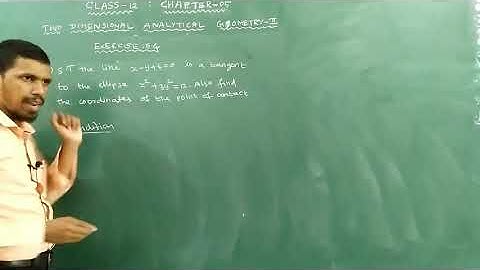 CLASS-12 : CHAPTER-05
TWO DIMENSIONAL ANALYTICAL GEOMETRY-II
EXERCISE-5.4
S.T the line x-y+4=0 is a tangent
to the ellipse x²+3y²=12. Also find
the coordinates of the point of contact